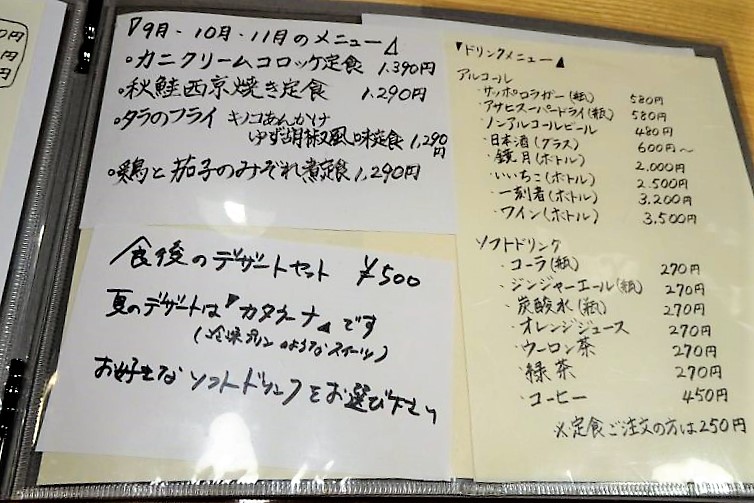 0円
円
円
『9月・10月・11月のメニュー』
・カニクリームコロッケ定食 1,390円
・秋鮭西京焼き定食 1,290円
・タラのフライ キノコあんかけ
ゆず胡椒風味定食 1,290円
・鶏と茄子のみぞれ煮定食 1,290円
食後のデザートセット ¥500
夏のデザートは『カタラーナ』です
(冷凍プリンのようなスイーツ)
お好きなソフトドリンクをお選び下さい
『ドリンクメニュー』
アルコール
・サッポロラガー(瓶) 580円
・アサヒスーパードライ(瓶) 580円
・ノンアルコールビール 480円
・日本酒(グラス) 600円〜
・鏡月(ボトル) 2,000円
・いいちこ(ボトル) 2,500円
・一刻者(ボトル) 3,200円
・ワイン(ボトル) 3,500円
ソフトドリンク
・コーラ(瓶) 270円
・ジンジャーエール(瓶) 270円
・炭酸水(瓶) 270円
・オレンジジュース 270円
・ウーロン茶 270円
・緑茶 270円
・コーヒー 450円
※定食ご注文の方は250円